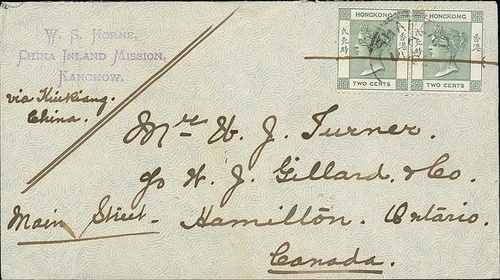 W. S. Horne,
China Inland Mission,
Kanchow.
via Kiukiang.
China.
HONGKONG
香港
TWO CENTS
HONGKONG
香港
TWO CENTS
Mr W. J. Turner.
c/o W. J. Gillard & Co.
Main Street - Hamilton. Ontario.
Canada.